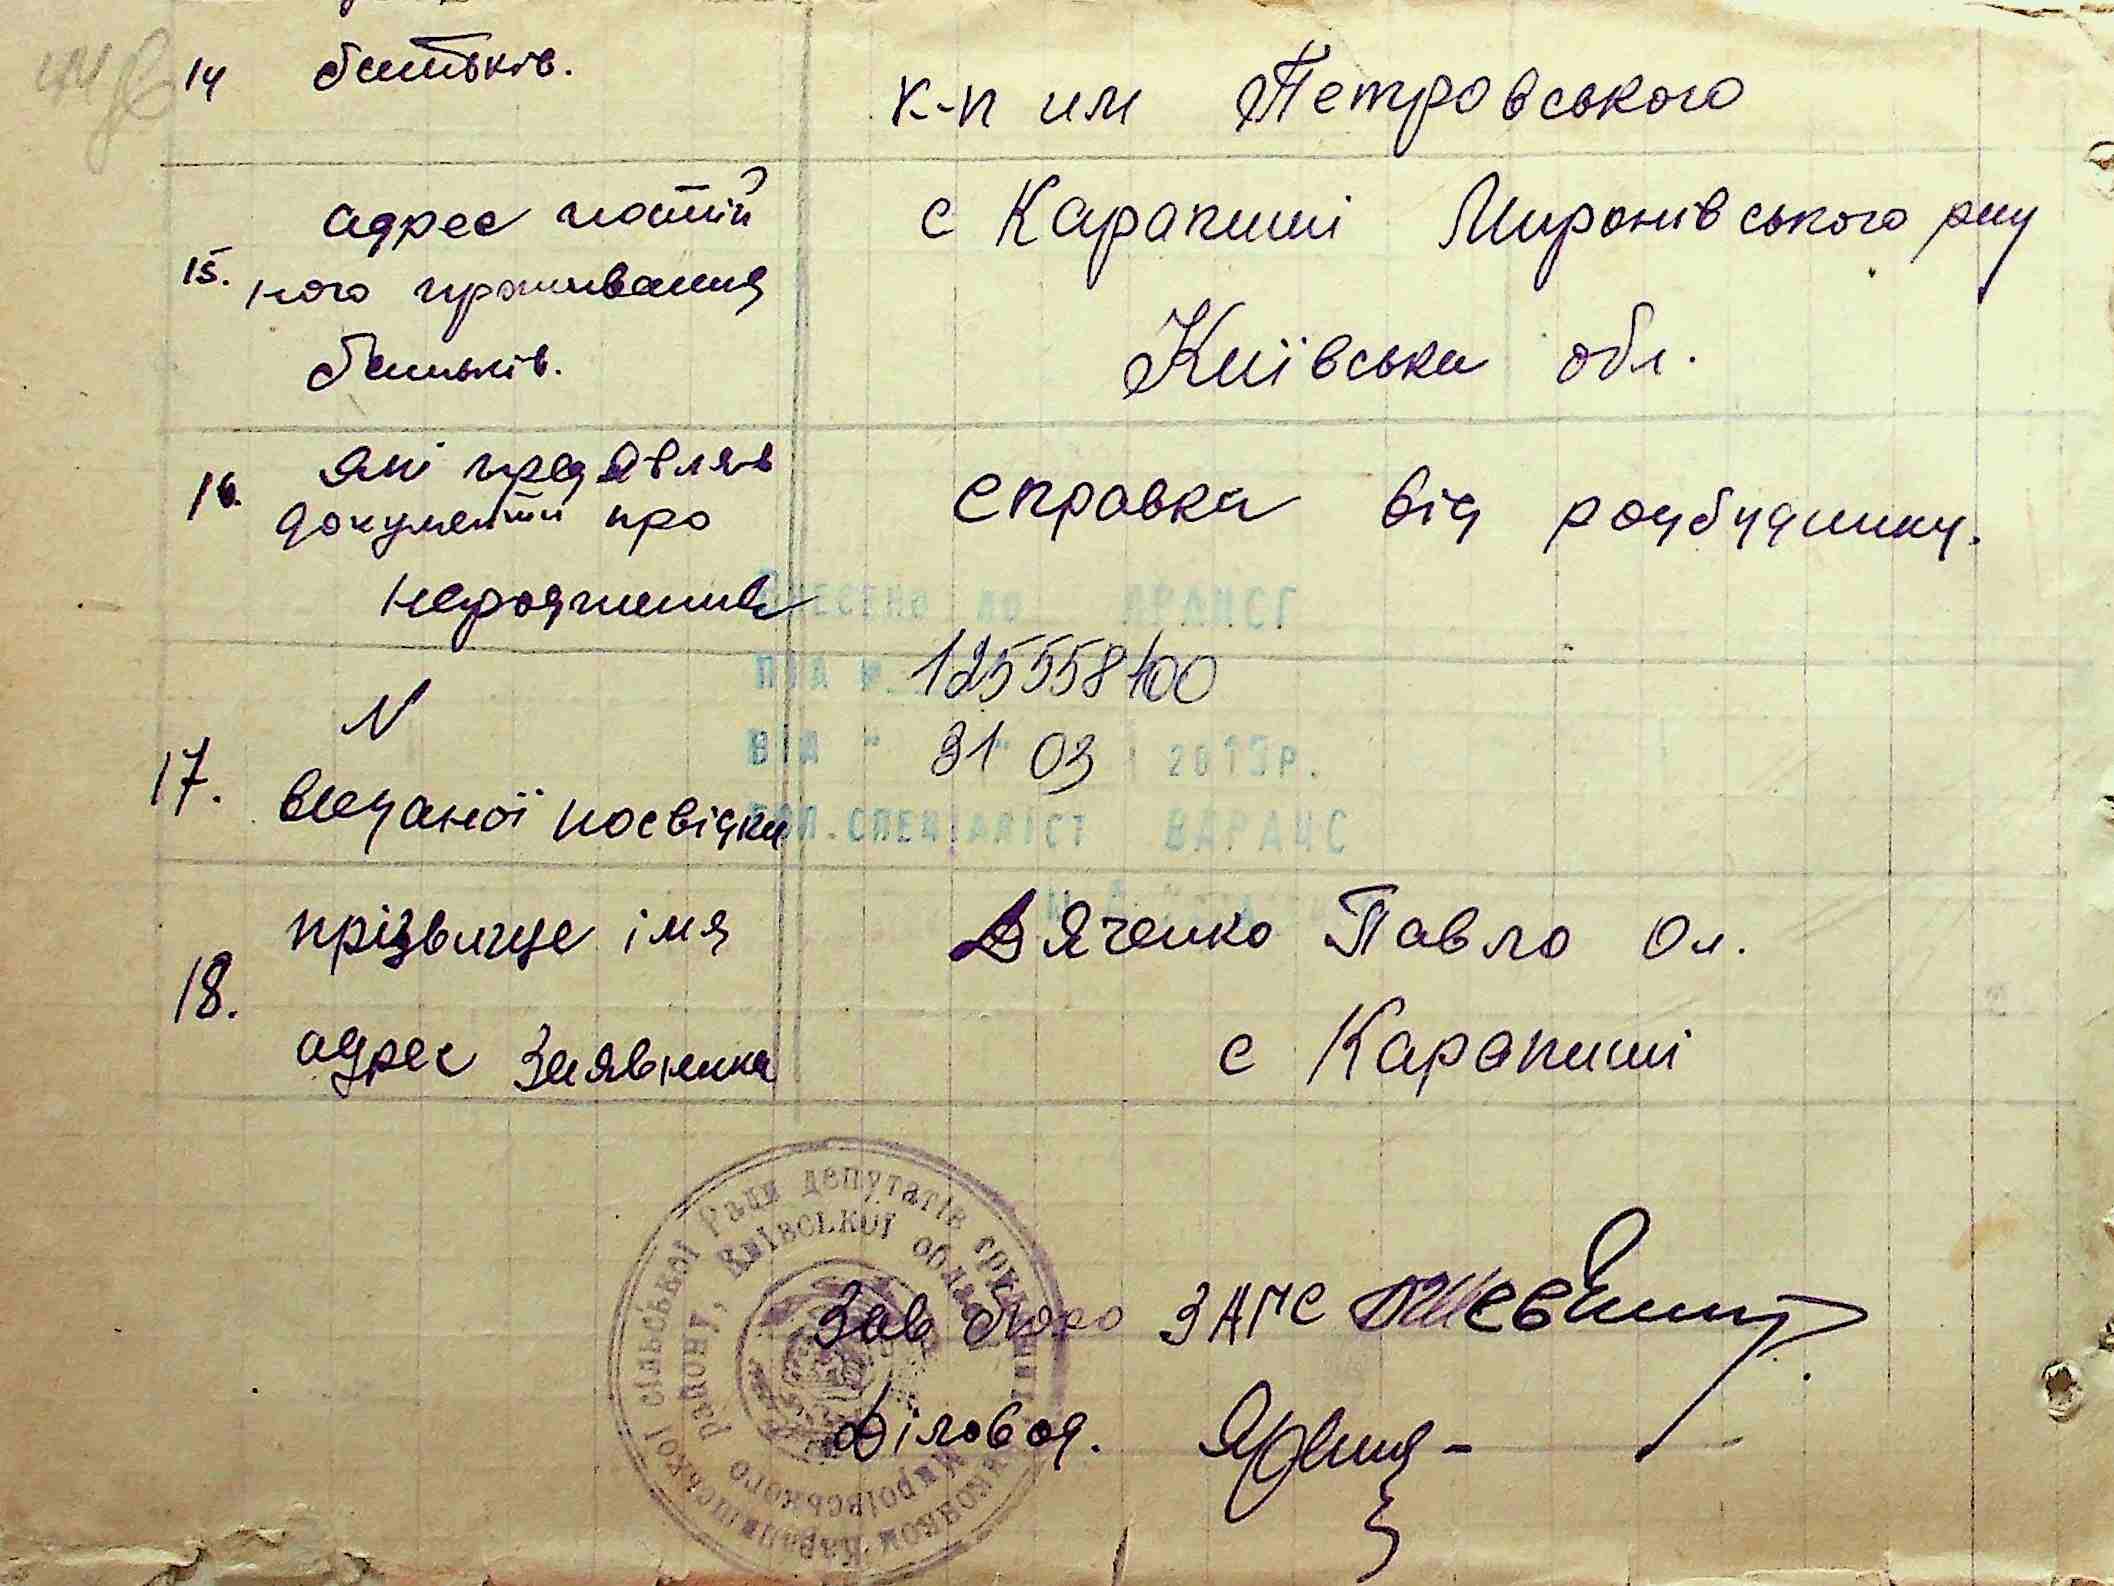 14 батьків.
к-п им Петровського
15. адрес постій
ного проживання
батьків.
с Карапиші Миронівського р-ну
Київська обл.
16. які предявляв
документи про
народження
справка від родбудинку.
Внесено до ДРАЦСГ
під № 125558400
від " 31 " 03 2015р.
.спеціаліст ВДРАЦС
17. N
виданої посвідки
18. прізвище імя
адрес заявника
Дяченко Павло Ол.
с Карапиші
Карапишської сільської Ради депутатів трудящих
Миронівського району, Київської області
Зав бюро ЗАГС
Діловод.